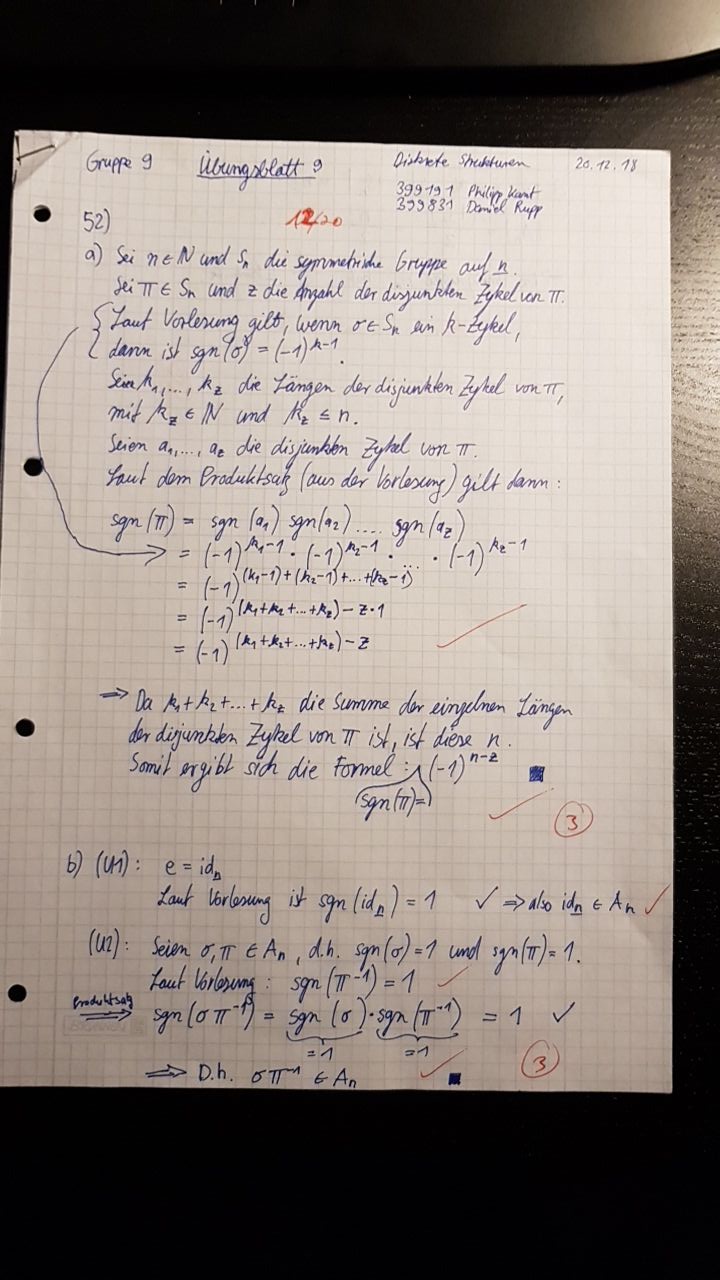 Gruppe 9 Übungsblatt 9 Diskrete Strukturen 20.12.18
399191 Philipp Kant
399831 Daniel Rupp
52) 12/20
a) Sei n ∈ ℕ und Sn die symmetrische Gruppe auf n.
Sei π ∈ Sn und z die Anzahl der disjunkten Zykel von π.
Laut Vorlesung gilt, wenn σ ∈ Sn ein k-Zykel,
dann ist sgn(σ) = (-1)^k-1.
Seien k1,..., kz die Längen der disjunkten Zykel von π,
mit kz ∈ ℕ und kz ≤ n.
Seien a1,..., az die disjunkten Zykel von π.
Laut dem Produktsatz (aus der Vorlesung) gilt dann:
sgn(π) = sgn(a1) sgn(a2) .... sgn(az)
= (-1)^k1-1 · (-1)^k2-1 · ... · (-1)^kz-1
= (-1)^(k1-1)+(k2-1)+...+(kz-1)
= (-1)^(k1+k2+...+kz)-z·1
= (-1)^(k1+k2+...+kz)-z ✓
⇒ Da k1+k2+...+kz die Summe der einzelnen Längen
der disjunkten Zykel von π ist, ist diese n.
Somit ergibt sich die Formel: (-1)^n-z ■
sgn(π)= ✓ 3
b) (U1): e = idn
Laut Vorlesung ist sgn(idn) = 1 ✓ ⇒ also idn ∈ An ✓
(U2): Seien σ,π ∈ An, d.h. sgn(σ)=1 und sgn(π)=1.
Laut Vorlesung: sgn(π^-1) = 1 ✓
Produktsatz
⇒ sgn(σπ^-1) = sgn(σ)·sgn(π^-1) = 1 ✓
=1 =1 3
⇒ D.h. σπ^-1 ∈ An ✓ ■